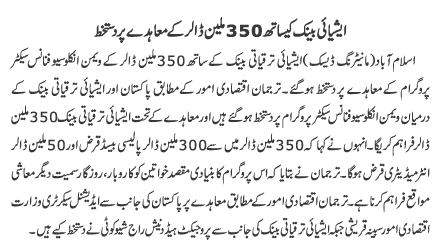 ایشیائی بینک کیساتھ 350 ملین ڈالر کے معاہدے پر دستخط
اسلام آباد (مانیٹرنگ ڈیسک) ایشیائی ترقیاتی بینک کے ساتھ 350 ملین ڈالر کے ویمن انکلوسیو فنانس سیکٹر
پروگرام کے معاہدے پر دستخط ہو گئے۔ ترجمان اقتصادی امور کے مطابق پاکستان اور ایشیائی ترقیاتی بینک کے
درمیان ویمن انکلوسیو فنانس سیکٹر پروگرام پر دستخط ہو گئے ہیں اور معاہدے کے تحت ایشیائی ترقیاتی بینک 350 ملین
ڈالر فراہم کریگا۔ انہوں نے کہا کہ 350 ملین ڈالر میں سے 300 ملین ڈالر پالیسی بیسڈ قرض اور 50 ملین ڈالر
انٹرمیڈیٹری قرض ہوگا۔ ترجمان نے بتایا کہ اس پروگرام کا بنیادی مقصد خواتین کو کاروبار، روزگار سمیت دیگر معاشی
مواقع فراہم کرنا ہے۔ ترجمان اقتصادی امور کے مطابق معاہدے پر پاکستان کی جانب سے ایڈیشنل سیکرٹری وزارت
اقتصادی امور سبینہ قریشی جبکہ ایشیائی ترقیاتی بینک کی جانب سے پروجیکٹ ہیڈ دنیش راج شیوکوٹی نے دستخط کیے ہیں۔